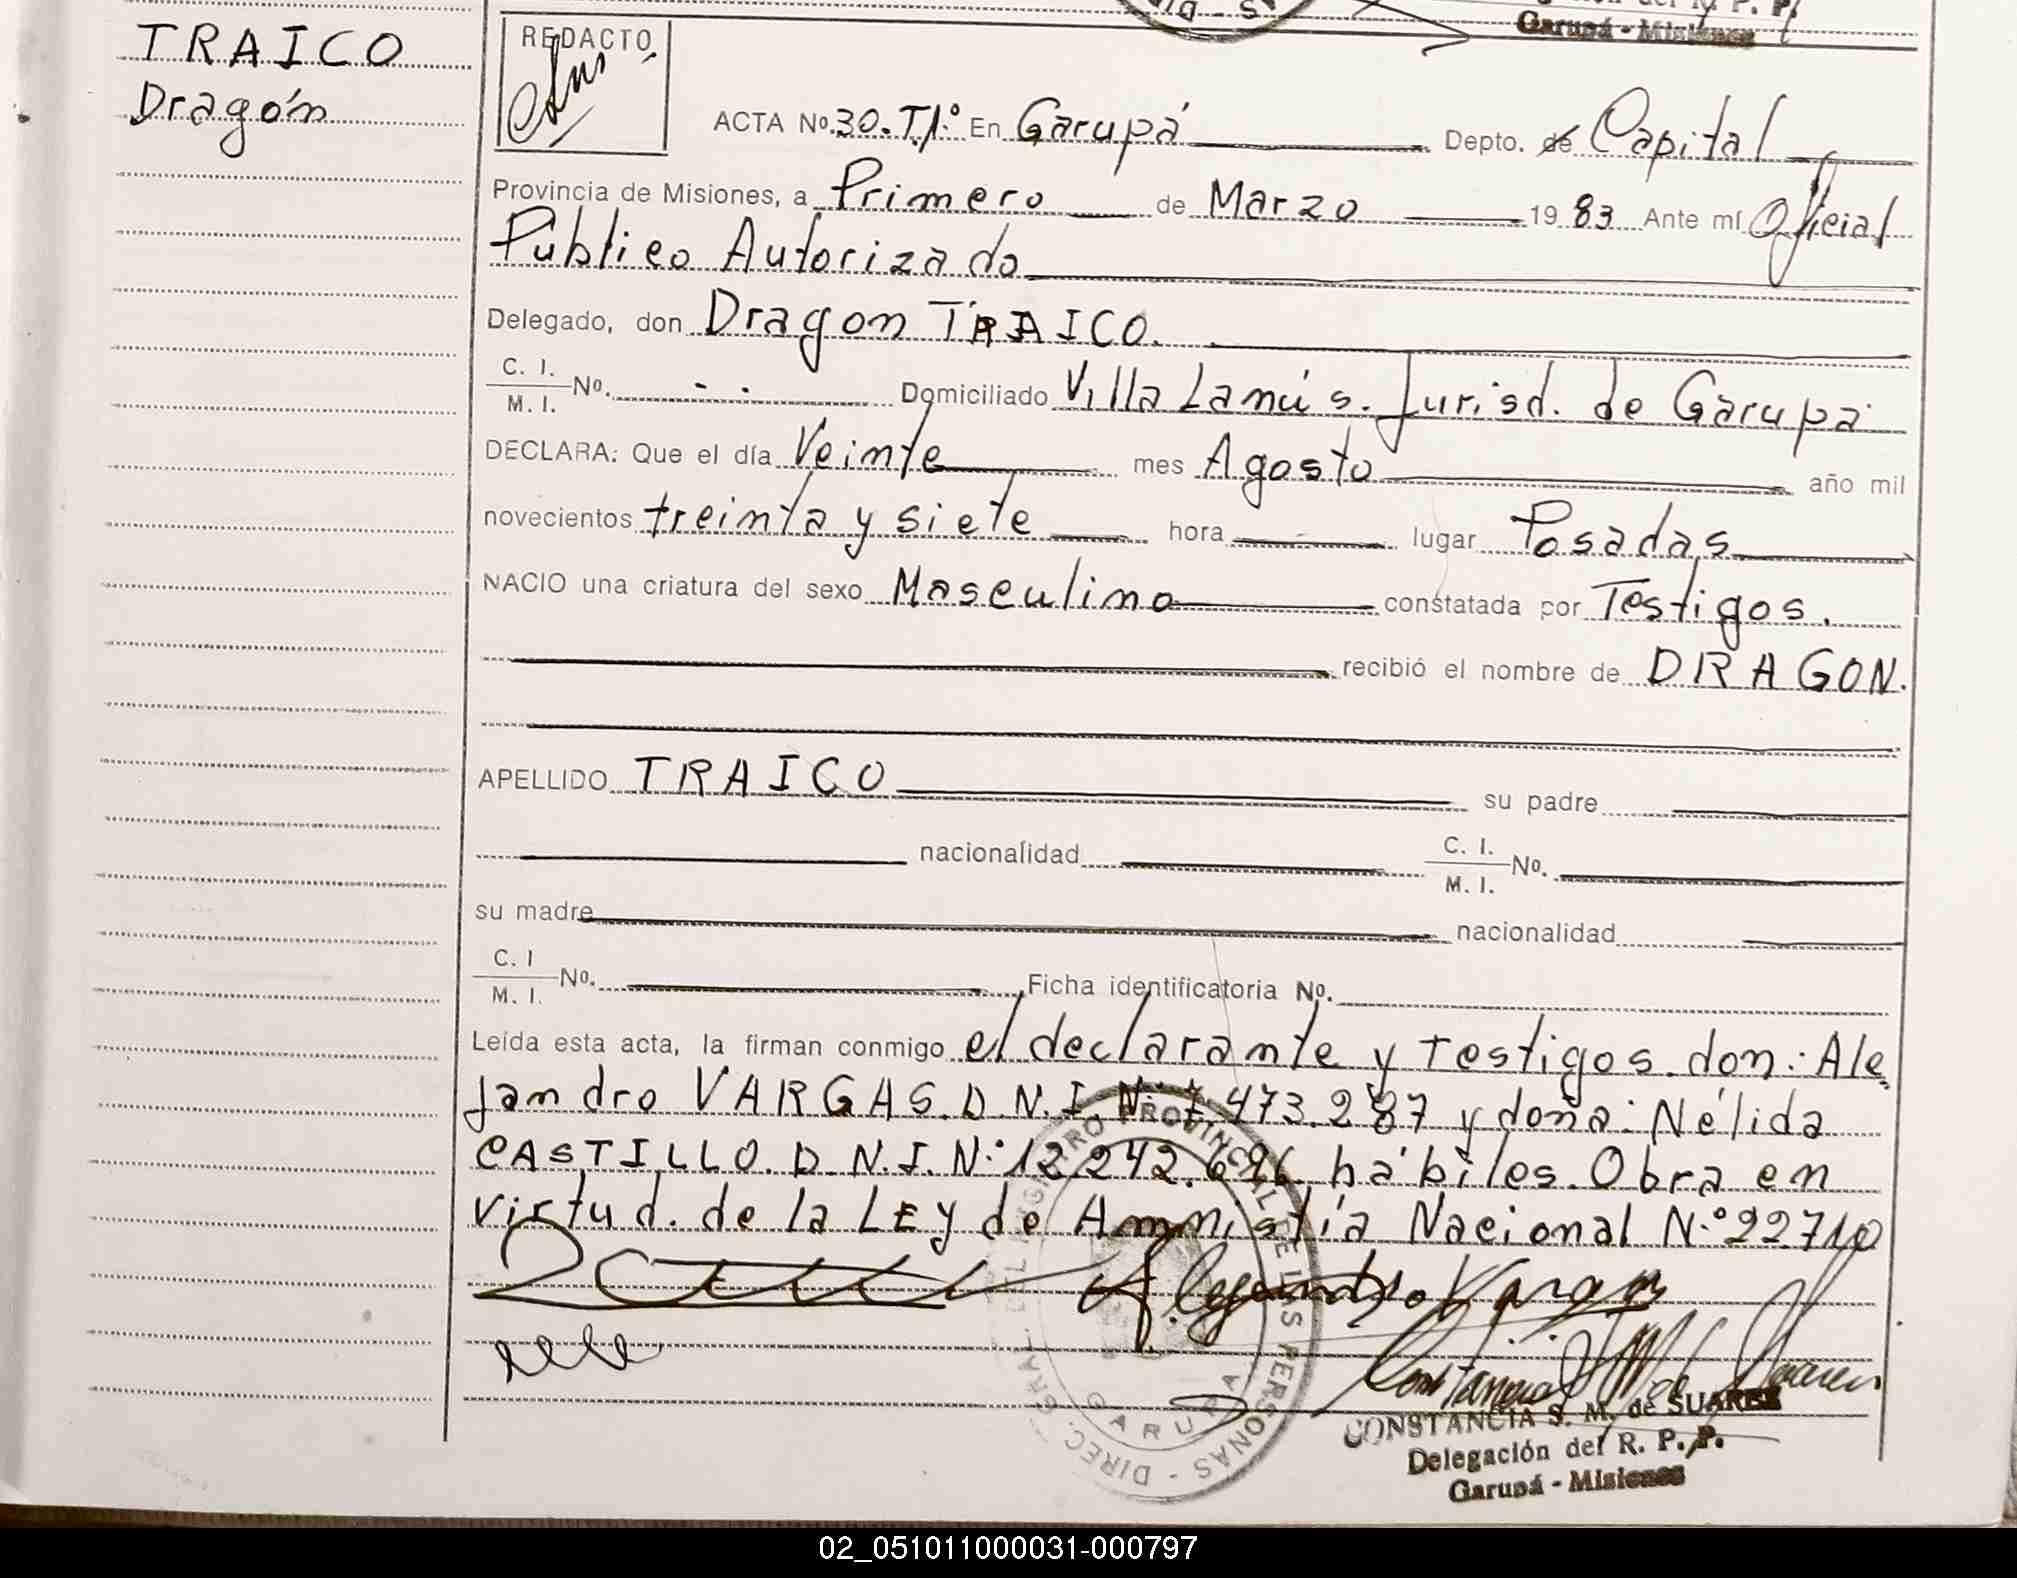 TRAICO
Dragón
REDACTO
Garupá - Misiones
ACTA No. 30. T1.º En Garupá Depto. de Capital
Provincia de Misiones, a Primero de Marzo 19 83 Ante mí Oficial
Público Autorizado
Delegado, don Dragon TRAICO.
C. I.
M. I. No. - . Domiciliado Villa Lanús. Jurisd. de Garupá
DECLARA: Que el día Veinte mes Agosto año mil
novecientos treinta y siete hora lugar Posadas
NACIO una criatura del sexo Masculino constatada por Testigos.
recibió el nombre de DRAGON.
APELLIDO TRAICO su padre
nacionalidad C. I.
M. I. No.
su madre nacionalidad
C. I
M. I. No. Ficha identificatoria No.
Leída esta acta, la firman conmigo el declarante y Testigos. don: Ale
jandro VARGAS. D. N. I. Nº 7.473.287 y doña: Nélida
CASTILLO. D. N. I. Nº 12.242.696, hábiles. Obra en
virtud. de la LEy de Amnistía Nacional N.º 22710
Alejandro Vargas
DIREC. GRAL. DEL REGISTRO PROVINCIAL DE LAS PERSONAS -
GARUPA
CONSTANCIA S. M. de SUAREZ
Delegación del R. P. P.
Garupá - Misiones
02_051011000031-000797